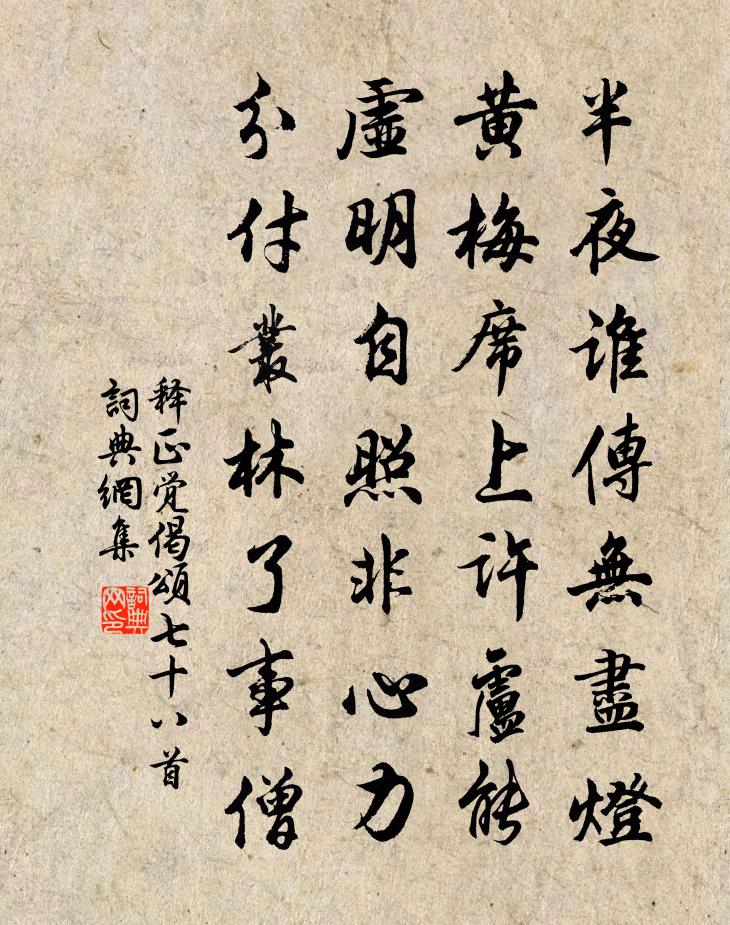 半夜誰傳無盡燈
黃梅席上許盧能
虛明自照非心力
分付叢林了事僧
释正觉偈頌七十八首
詞典網集
詞典网印